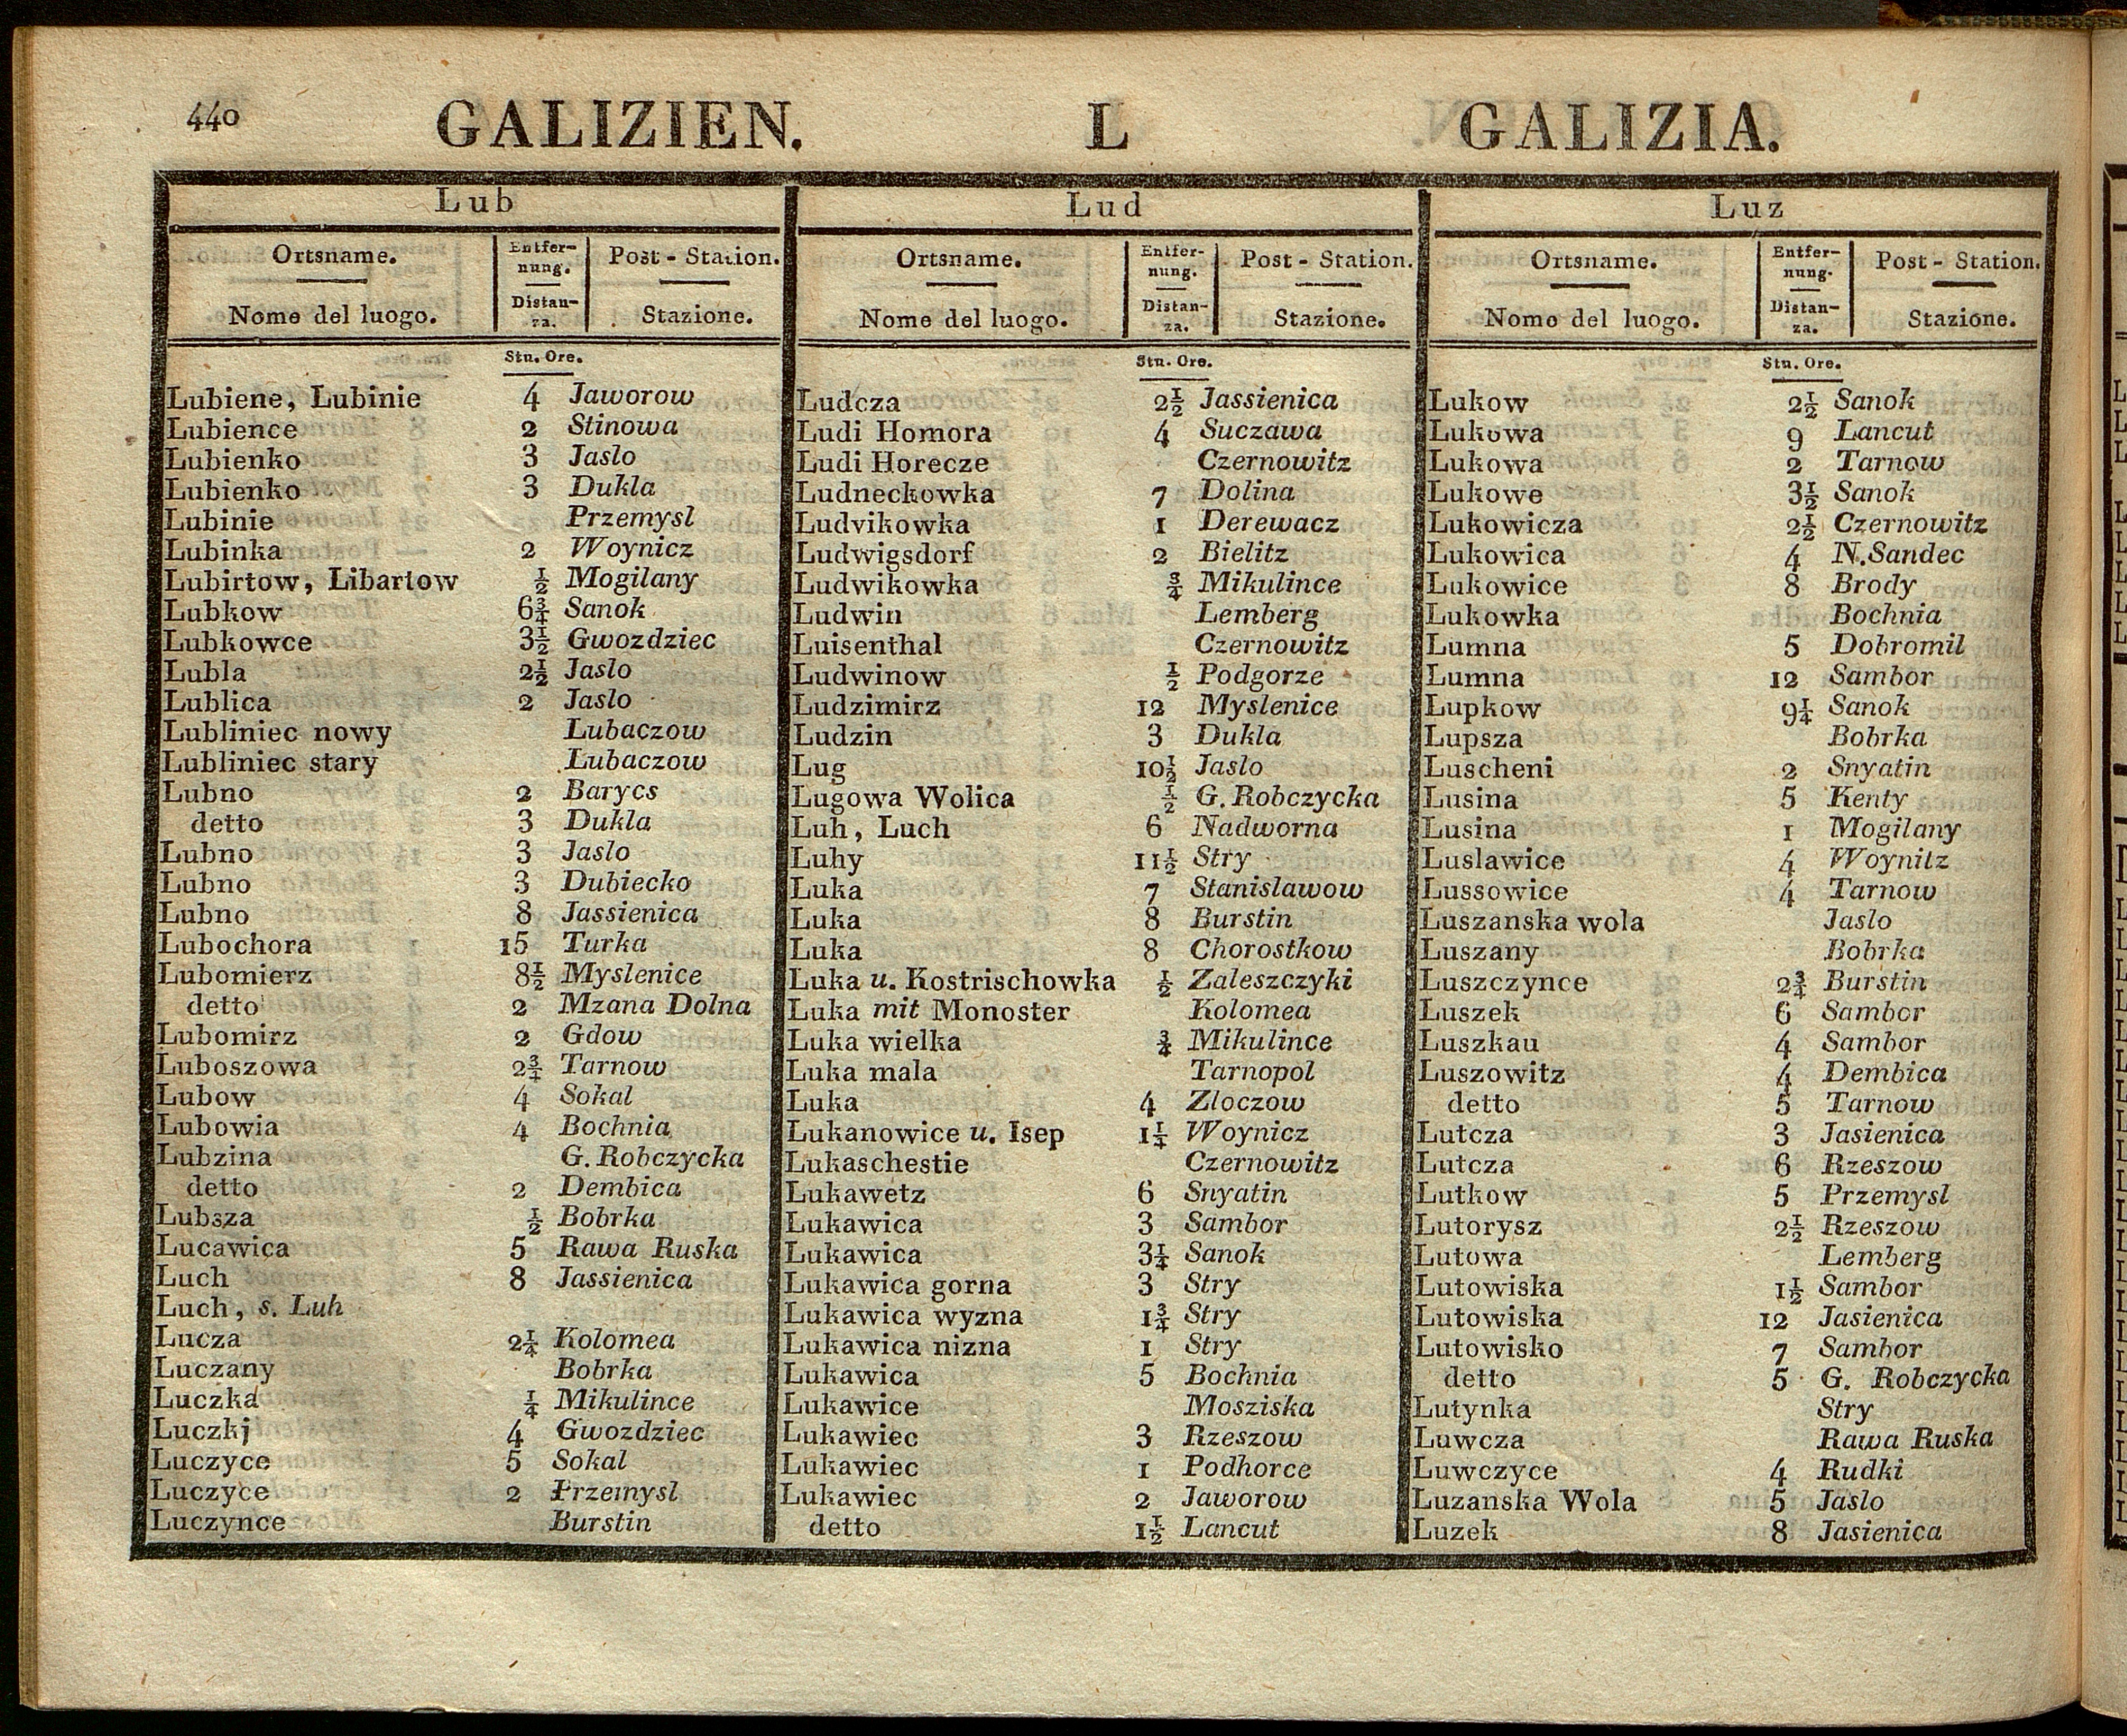 440 GALIZIEN. L GALIZIA.
Lub
Ortsname. Entfer-nung. Post - Station.
Nome del luogo. Distan-za. Stazione.
Stn. Ore.
Lubiene, Lubinie 4 Jaworow
Lubience 2 Stinowa
Lubienko 3 Jaslo
Lubienko 3 Dukla
Lubinie Przemysl
Lubinka 2 Woynicz
Lubirtow, Libartow ½ Mogilany
Lubkow 6¾ Sanok
Lubkowce 3½ Gwozdziec
Lubla 2½ Jaslo
Lublica 2 Jaslo
Lubliniec nowy Lubaczow
Lubliniec stary Lubaczow
Lubno 2 Barycs
detto 3 Dukla
Lubno 3 Jaslo
Lubno 3 Dubiecko
Lubno 8 Jassienica
Lubochora 15 Turka
Lubomierz 8½ Myslenice
detto 2 Mzana Dolna
Lubomirz 2 Gdow
Luboszowa 2¾ Tarnow
Lubow 4 Sokal
Lubowia 4 Bochnia
Lubzina G. Robczycka
detto 2 Dembica
Lubsza ½ Bobrka
Lucawica 5 Rawa Ruska
Luch 8 Jassienica
Luch, s. Luh
Lucza 2¼ Kolomea
Luczany Bobrka
Luczka ¼ Mikulince
Luczkj 4 Gwozdziec
Luczyce 5 Sokal
Luczyce 2 Przemysl
Luczynce Burstin
Lud
Ortsname. Entfer-nung. Post - Station.
Nome del luogo. Distan-za. Stazione.
Stn. Ore.
Ludcza 2½ Jassienica
Ludi Homora 4 Suczawa
Ludi Horecze Czernowitz
Ludneckowka 7 Dolina
Ludvikowka 1 Derewacz
Ludwigsdorf 2 Bielitz
Ludwikowka ¾ Mikulince
Ludwin Lemberg
Luisenthal Czernowitz
Ludwinow ½ Podgorze
Ludzimirz 12 Myslenice
Ludzin 3 Dukla
Lug 10½ Jaslo
Lugowa Wolica ½ G. Robczycka
Luh, Luch 6 Nadworna
Luhy 11½ Stry
Luka 7 Stanislawow
Luka 8 Burstin
Luka 8 Chorostkow
Luka u. Kostrischowka ½ Zaleszczyki
Luka mit Monoster Kolomea
Luka wielka ¾ Mikulince
Luka mala Tarnopol
Luka 4 Zloczow
Lukanowice u. Isep 1¼ Woynicz
Lukaschestie Czernowitz
Lukawetz 6 Snyatin
Lukawica 3 Sambor
Lukawica 3¼ Sanok
Lukawica gorna 3 Stry
Lukawica wyzna 1¾ Stry
Lukawica nizna 1 Stry
Lukawica 5 Bochnia
Lukawice Mosziska
Lukawiec 3 Rzeszow
Lukawiec 1 Podhorce
Lukawiec 2 Jaworow
detto 1½ Lancut
Luz
Ortsname. Entfer-nung. Post - Station.
Nome del luogo. Distan-za. Stazione.
Stn. Ore.
Lukow 2½ Sanok
Lukowa 9 Lancut
Lukowa 2 Tarnow
Lukowe 3½ Sanok
Lukowicza 2½ Czernowitz
Lukowica 4 N.Sandec
Lukowice 8 Brody
Lukowka Bochnia
Lumna 5 Dobromil
Lumna 12 Sambor
Lupkow 9¼ Sanok
Lupsza Bobrka
Luscheni 2 Snyatin
Lusina 5 Kenty
Lusina 1 Mogilany
Luslawice 4 Woynitz
Lussowice 4 Tarnow
Luszanska wola Jaslo
Luszany Bobrka
Luszczynce 2¾ Burstin
Luszek 6 Sambor
Luszkau 4 Sambor
Luszowitz 4 Dembica
detto 5 Tarnow
Lutcza 3 Jasienica
Lutcza 6 Rzeszow
Lutkow 5 Przemysl
Lutorysz 2½ Rzeszow
Lutowa Lemberg
Lutowiska 1½ Sambor
Lutowiska 12 Jasienica
Lutowisko 7 Sambor
detto 5 G. Robczycka
Lutynka Stry
Luwcza Rawa Ruska
Luwczyce 4 Rudki
Luzanska Wola 5 Jaslo
Luzek 8 Jasienica